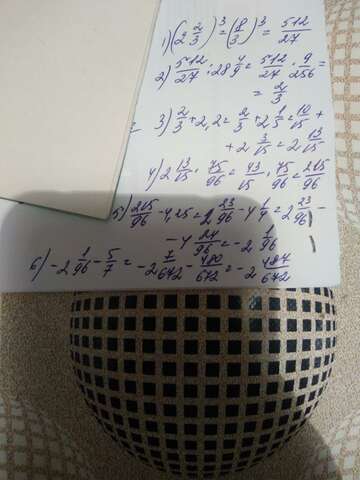 1) (2 2/3)³ = (8/3)³ = 512/27
2) 512/27 : 28 4/9 = 512/27 · 9/256 =
= 2/3
3) 2/3 + 2,2 = 2/3 + 2 1/5 = 10/15 +
+ 2 3/15 = 2 13/15
4) 2 13/15 · 75/96 = 43/15 · 75/96 = 215/96
5) 215/96 - 4,25 = 2 23/96 - 4 1/4 = 2 23/96 -
- 4 24/96 = -2 1/96
6) -2 1/96 - 5/7 = -2 7/672 - 480/672 = -2 487/672